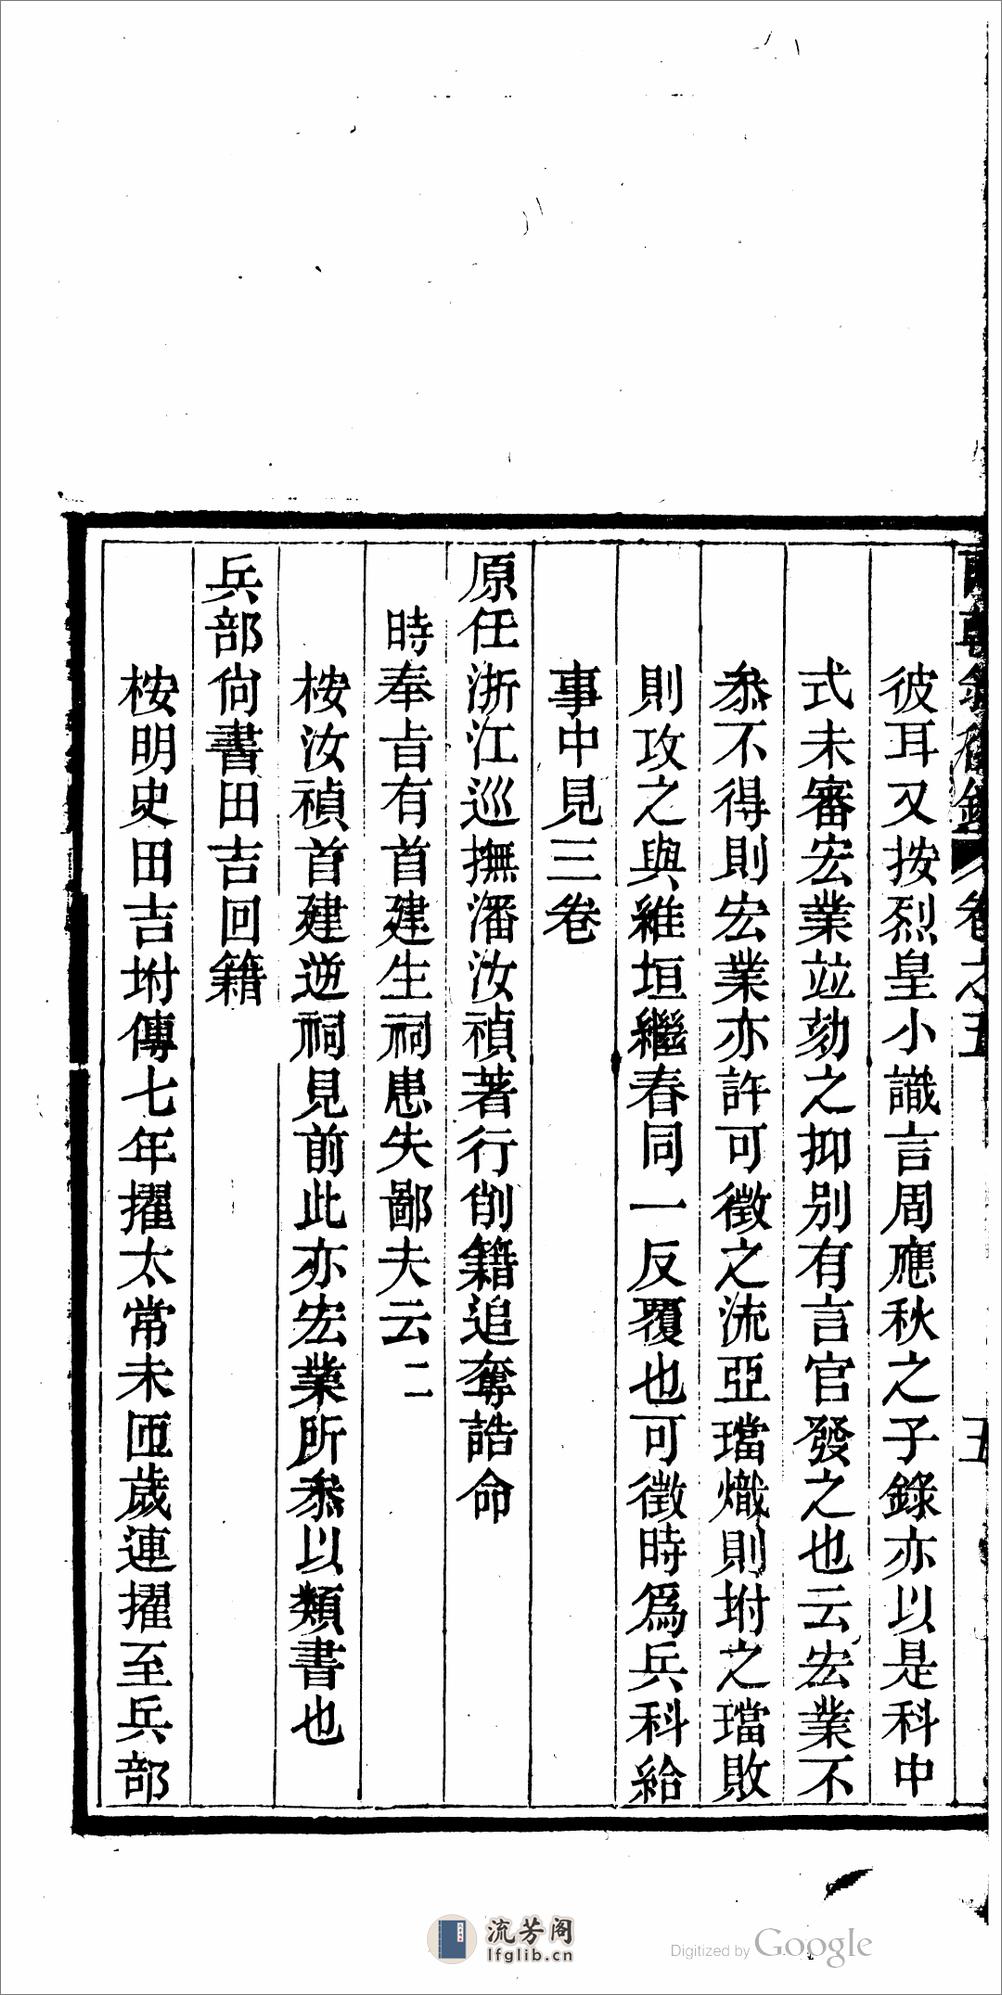 彼耳又按烈皇小識言周應秋之子錄亦以是科中
式未審宏業並劾之抑別有言官發之也云宏業不
叅不得則宏業亦許可徵之流亞璫熾則坿之璫敗
則攻之與維垣繼春同一反覆也可徵時爲兵科給
事中見三卷
原任浙江巡撫潘汝禎著行削籍追奪誥命
時奉旨有首建生祠患失鄙夫云二
桉汝禎首建逆祠見前此亦宏業所叅以類書也
兵部尙書田吉回籍
桉明史田吉坿傳七年擢太常未匝歲連擢至兵部
卷之五
五
流芳阁
lfglib.cn
Digitized by Google